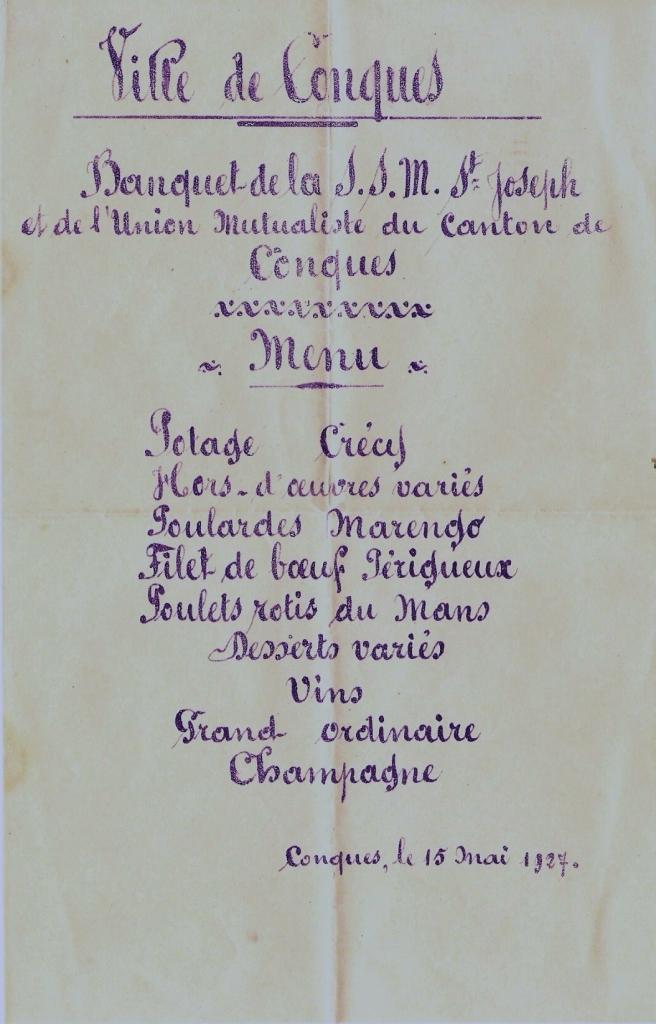 Ville de Conques
Banquet de la S.S.M. St. Joseph
et de l'Union Mutualiste du Canton de
Conques
xxxxxxxxxx
Menu
Potage Crécy
Hors-d'œuvres variés
Poulardes Marengo
Filet de bœuf Périgueux
Poulets rotis du Mans
Desserts variés
Vins
Grand ordinaire
Champagne
Conques, le 15 Mai 1927.